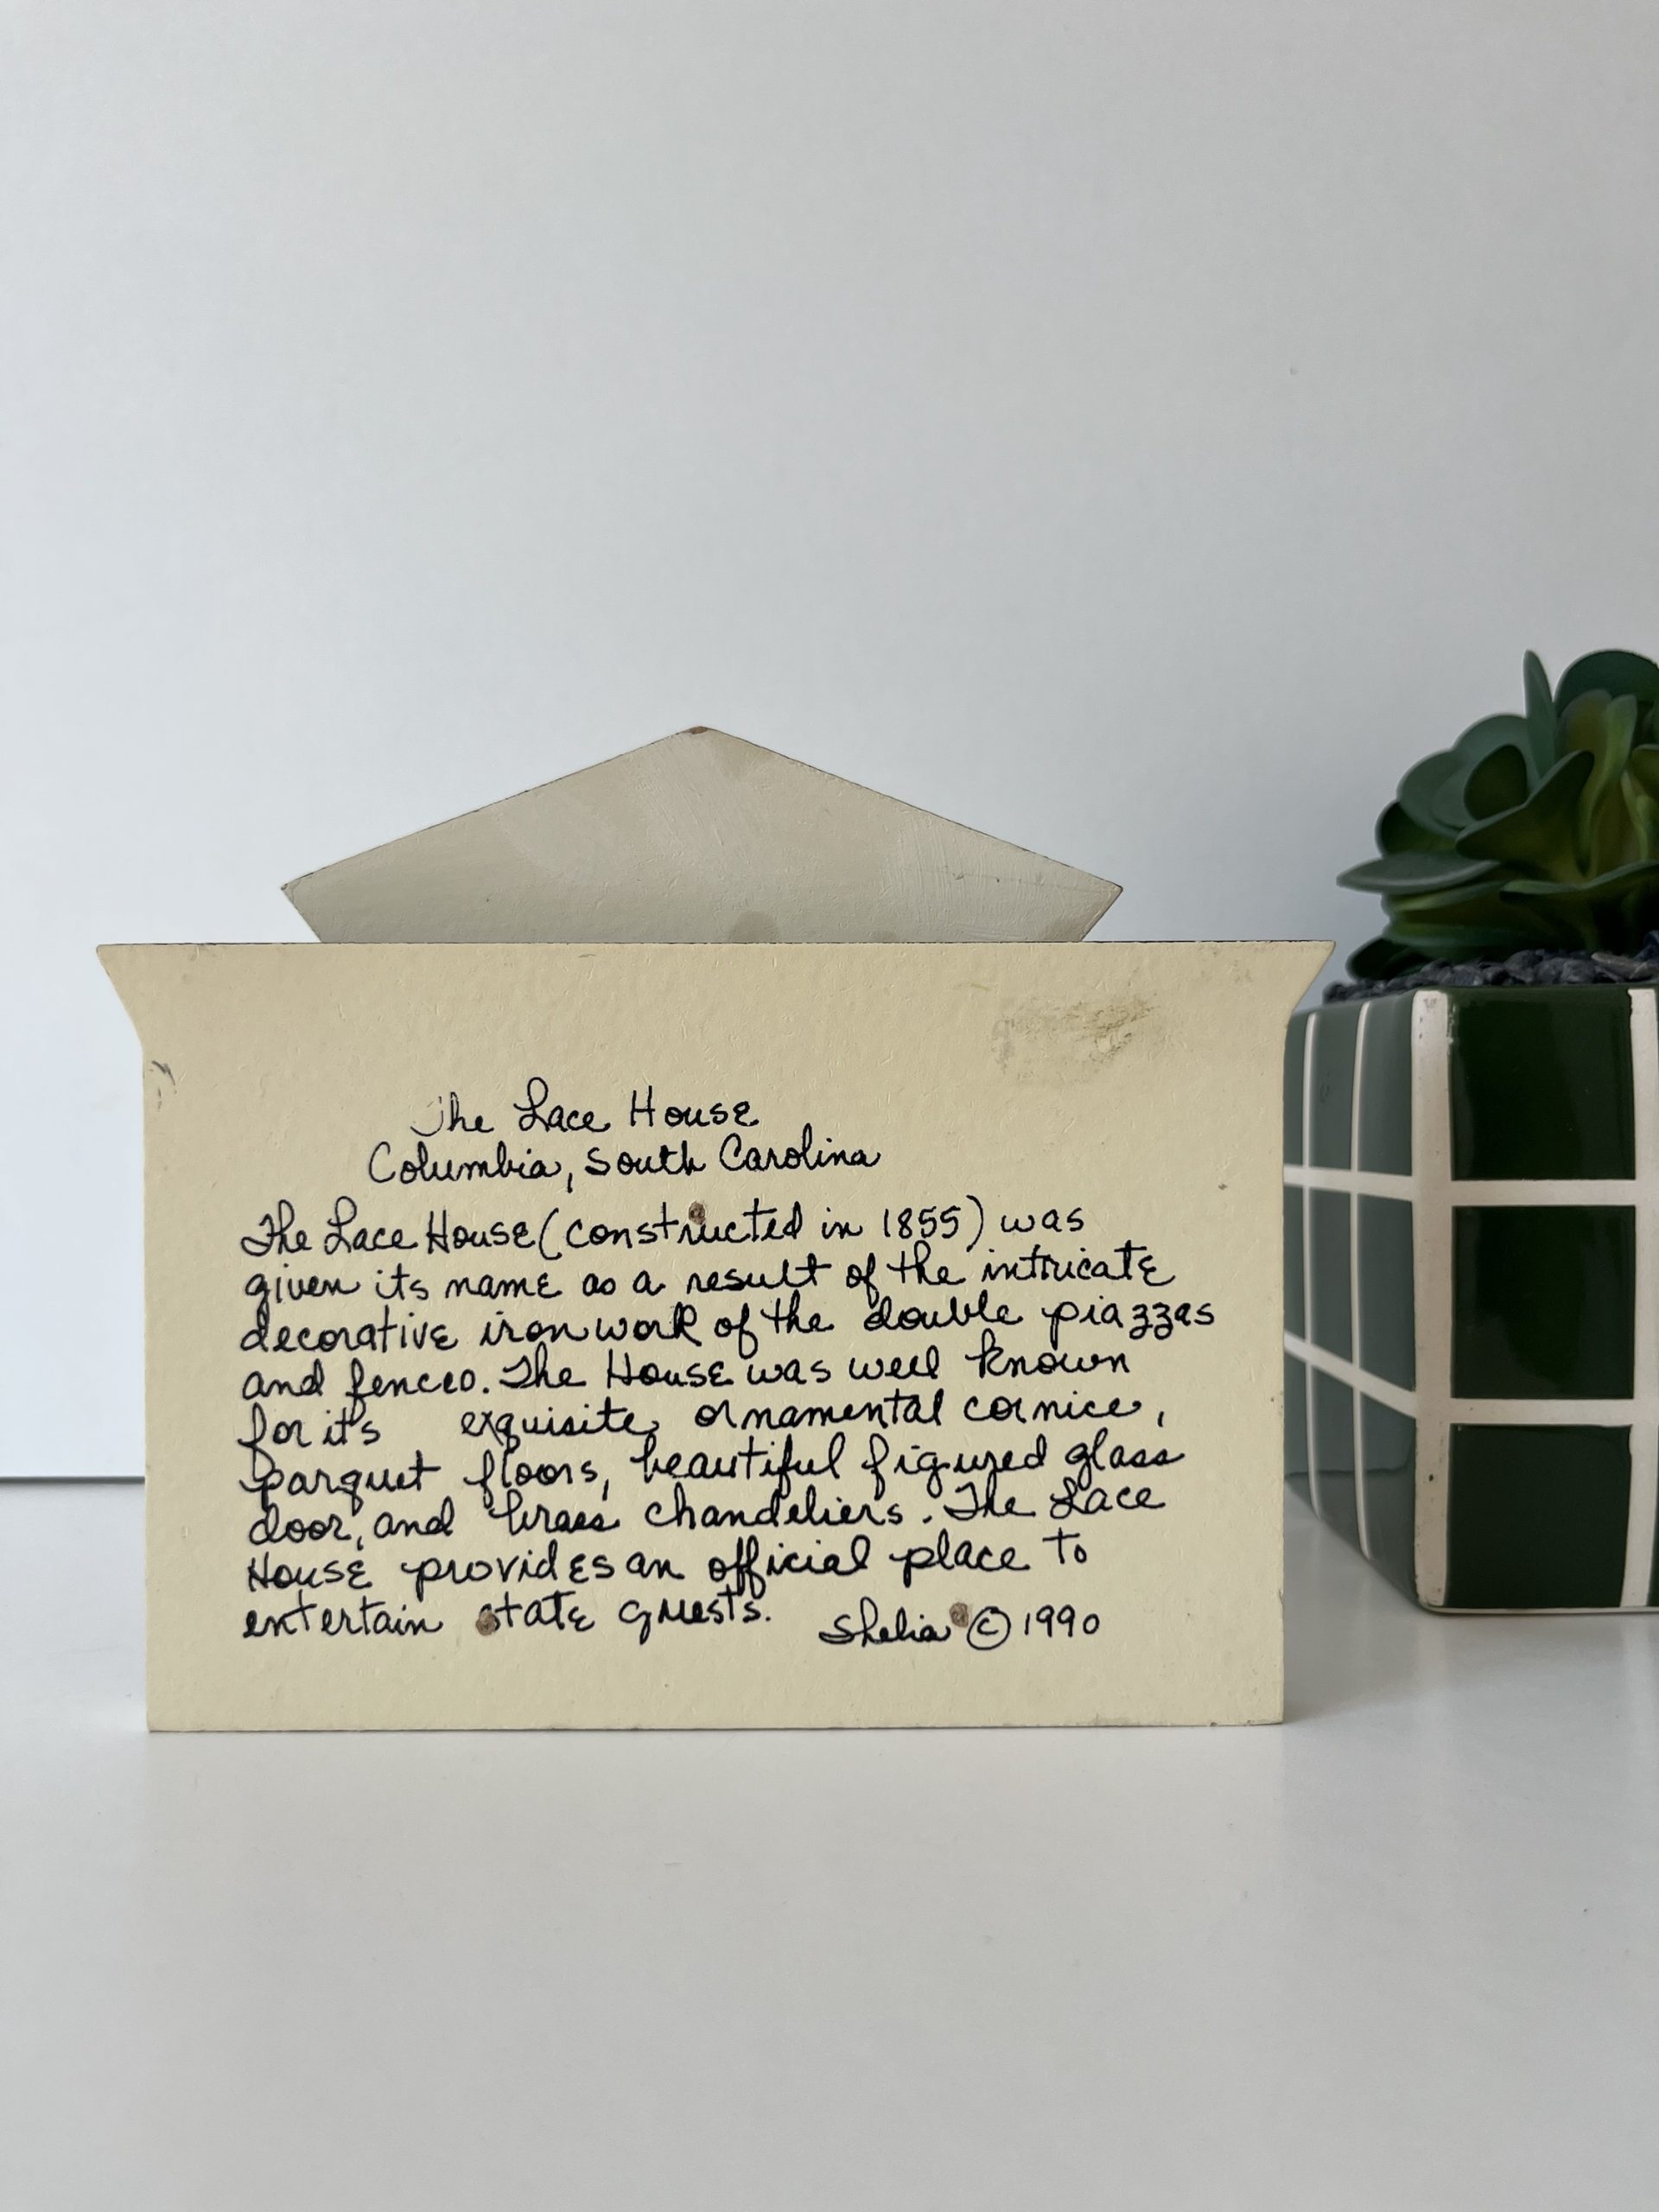 The Lace House
Columbia, South Carolina
The Lace House (constructed in 1855) was
given its name as a result of the intricate
decorative ironwork of the double piazzas
and fences. The House was well known
for it's exquisite ornamental cornice,
parquet floors, beautiful figured glass
door, and brass chandeliers. The Lace
House provides an official place to
entertain state guests.
Shelia © 1990